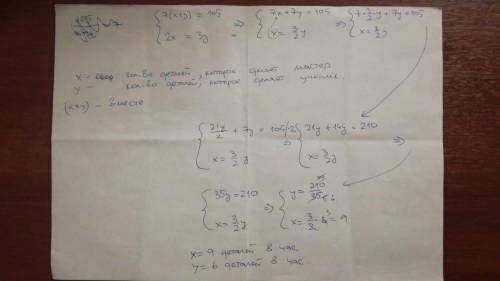 { 7(x+y) = 105 ⇒ { 7x+7y = 105 ⇒ { 7·3/2y + 7y = 105
{ 2x = 3y { x = 3/2y { x = 3/2y
x - кол-во деталей, которое делает мастер
y - кол-во деталей, которое делает ученик.
(x+y) - вместе
{ 21y/2 + 7y = 105 |·2 ⇒ { 21y + 14y = 210 ⇒
{ x = 3/2y { x = 3/2y
{ 35y = 210 ⇒ { y = 210/35 = 6
{ x = 3/2y { x = 3/2 · 6 = 9
x = 9 деталей в час
y = 6 деталей в час